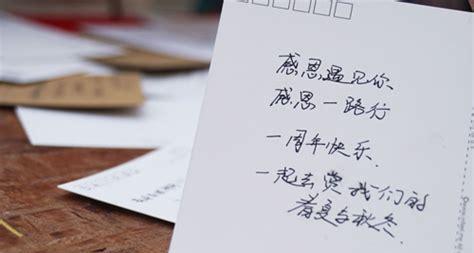 感恩遇见你
感恩一路行
一周年快乐.
一起去赏我们的
春夏与秋冬